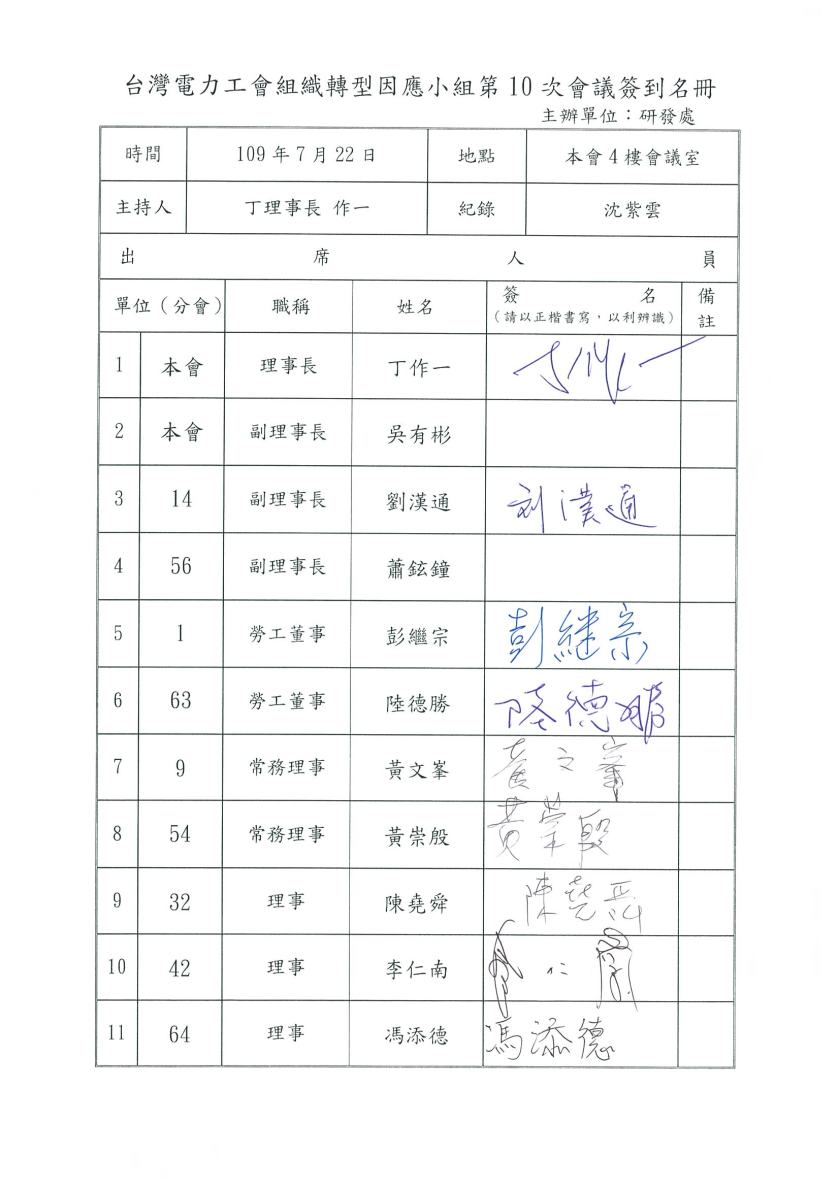 台灣電力工會組織轉型因應小組第10次會議簽到名冊
主辦單位：研發處
時間 109年7月22日 地點 本會4樓會議室
主持人 丁理事長 作一 紀錄 沈紫雲
出 席 人 員
單位（分會） 職稱 姓名 簽 名 備註
（請以正楷書寫，以利辨識）
1 本會 理事長 丁作一
2 本會 副理事長 吳有彬
3 14 副理事長 劉漢通 刘漢通
4 56 副理事長 蕭鉉鐘
5 1 勞工董事 彭繼宗 彭継宗
6 63 勞工董事 陸德勝 陸德勝
7 9 常務理事 黃文峯 黃文峯
8 54 常務理事 黃崇殷 黃崇殷
9 32 理事 陳堯舜 陳堯舜
10 42 理事 李仁南
11 64 理事 馮添德 馮添德